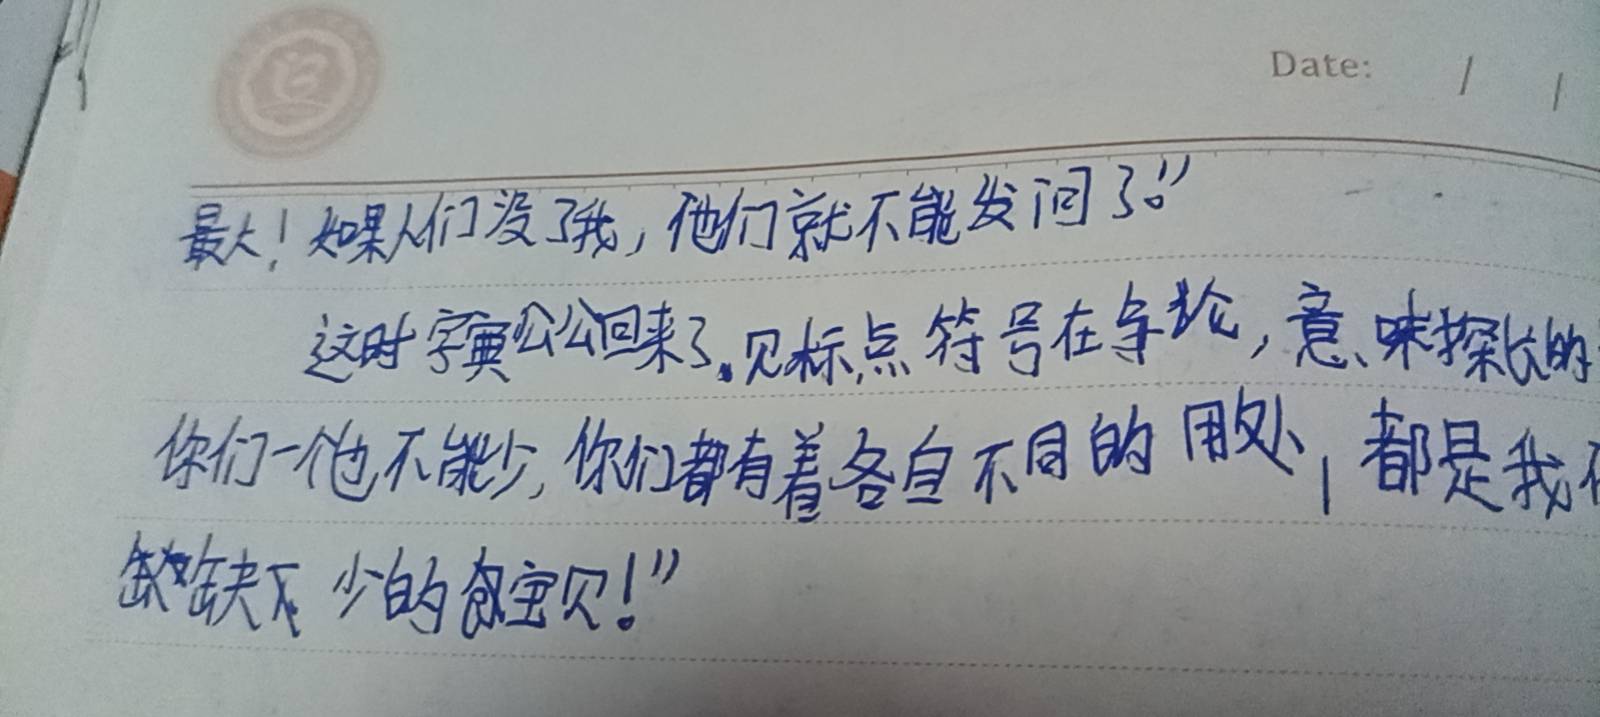 Date: / /
最大！如果人们没了我，他们就不能发问了。”
这时字典公公回来了。见标点符号在争论，意味探长的
你们一个也不能少，你们都有着各自不同的用处，都是我
缺不少的宝贝！”